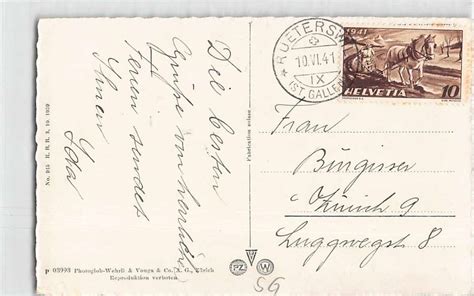 Die besten
Grüsse von herrlichen
Ferien sendet
Ihnen
Ida
No. 915 R. H. R. S. 19. 1939
P 03993 Photoglob-Wehrli & Vouga & Co. A. G., Zürich
Reproduktion verboten
Fabrication suisse
PZ W
RUETERSW
10.VI.41
IX
(ST. GALLEN)
1941
HELVETIA 10
Frau
Bürgisser
Zürich 9
Luggwegst 8
SG